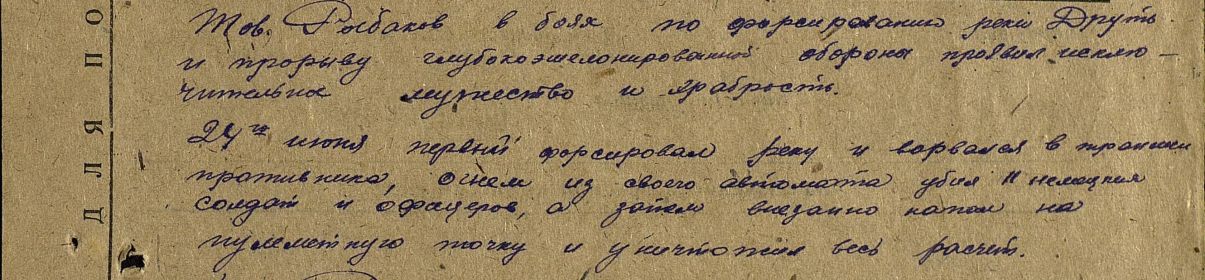 Тов. Рыбаков в боях по форсированию реки Друть
и прорыву глубокоэшелонированной обороны проявил исклю-
чительное мужество и храбрость.
24го июня первый форсировал реку и ворвался в траншеи
противника, огнем из своего автомата убил 11 немецких
солдат и офицеров, а затем внезапно напал на
пулеметную точку и уничтожил весь расчет.
ДЛЯ ПО